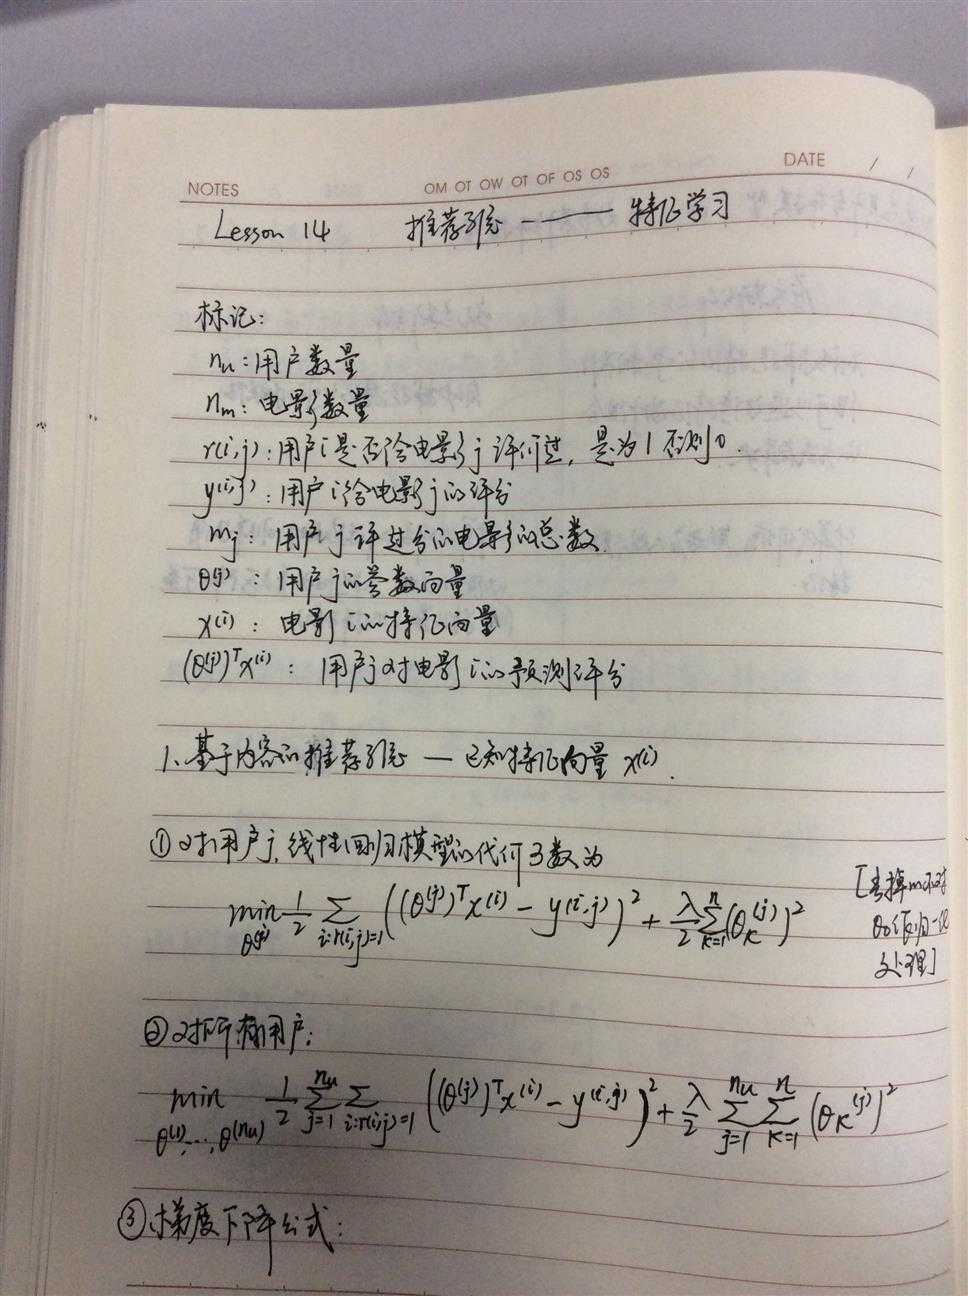 NOTES OM OT OW OT OF OS OS DATE / /
Lesson 14 推荐系统 —— 特征学习
标记:
nu:用户数量
nm:电影数量
r(i,j):用户i是否给电影j评价过,是为1否则0.
y(i,j):用户i给电影j的评分
mj:用户j评过分的电影的总数
θ(j):用户j的参数向量
x(i):电影i的特征向量
(θ(j))ᵀx(i):用户j对电影i的预测评分
1、基于内容的推荐系统 — 已知特征向量 x(i).
①对用户j,线性回归模型的代价函数为
min θ(j) 1/2 Σ i:r(i,j)=1 ((θ(j))ᵀx(i) - y(i,j))² + λ/2 Σ k=1 n (θk(j))²
[去掉m不对
θ0作归一化
处理]
②对所有用户:
min θ(1),…,θ(nu) 1/2 Σ j=1 nu Σ i:r(i,j)=1 ((θ(j))ᵀx(i) - y(i,j))² + λ/2 Σ j=1 nu Σ k=1 n (θk(j))²
③梯度下降公式: